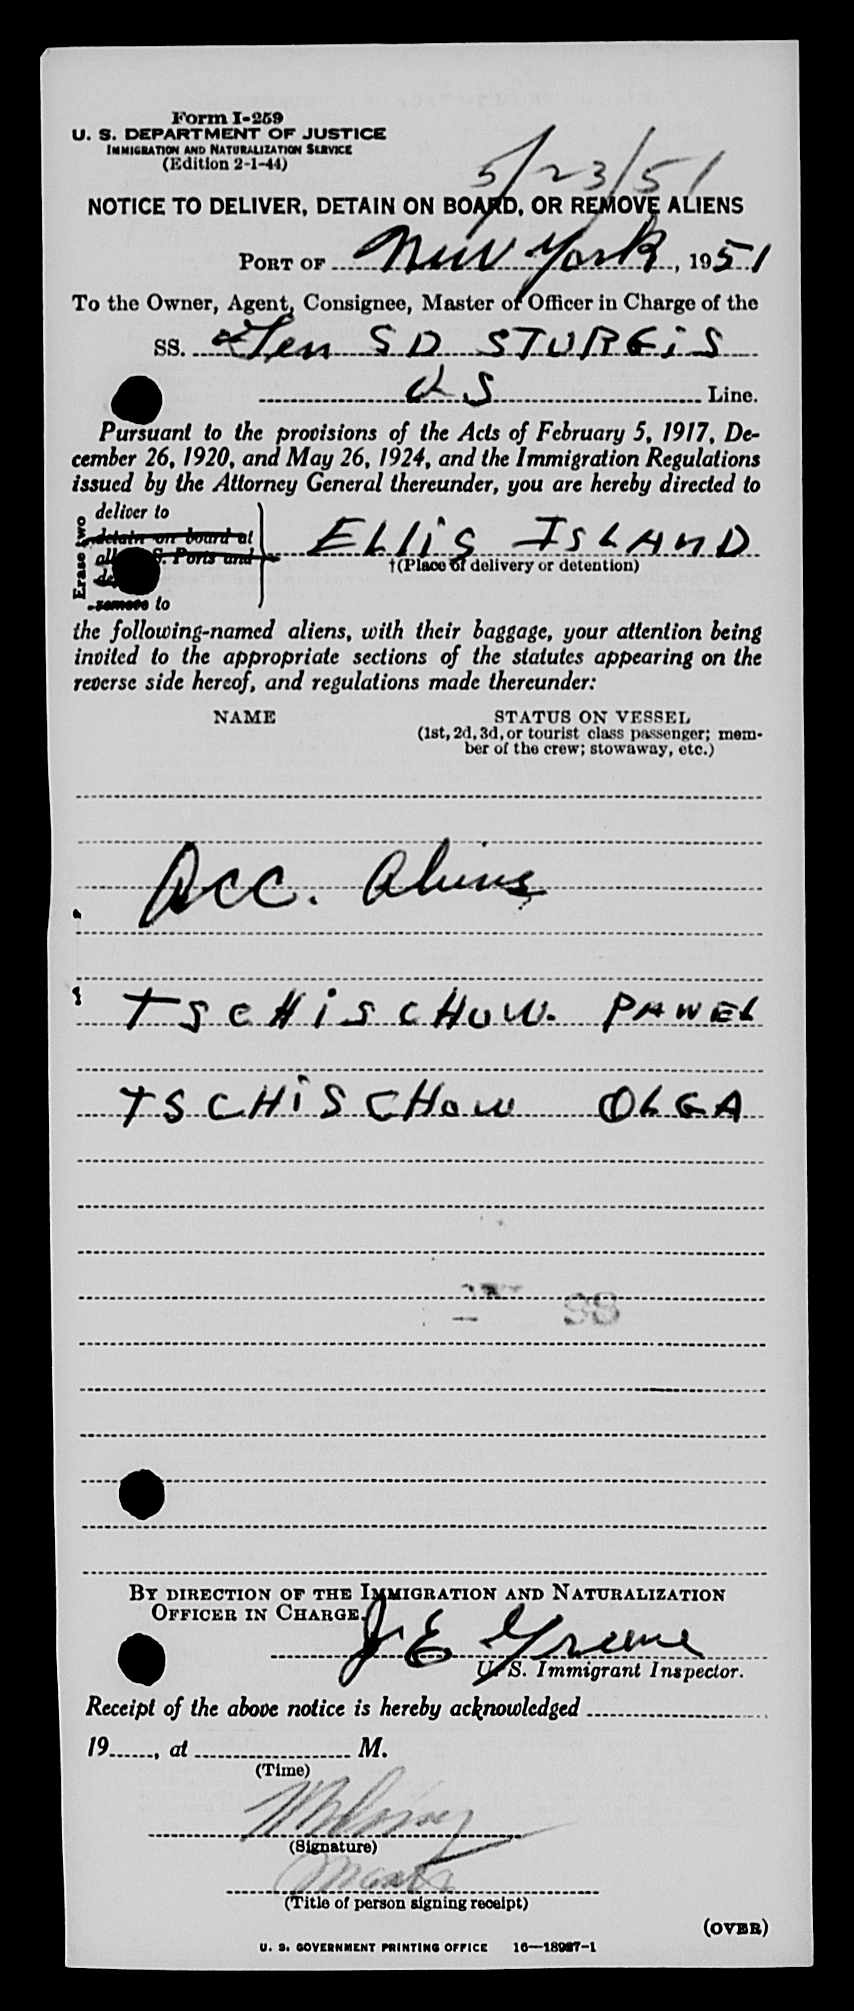 Form I-259
U. S. DEPARTMENT OF JUSTICE
IMMIGRATION AND NATURALIZATION SERVICE
(Edition 2-1-44)
5/23/51
NOTICE TO DELIVER, DETAIN ON BOARD, OR REMOVE ALIENS
PORT OF New York, 1951
To the Owner, Agent, Consignee, Master or Officer in Charge of the
SS. Gen S D STURGiS
US Line.
Pursuant to the provisions of the Acts of February 5, 1917, De-
cember 26, 1920, and May 26, 1924, and the Immigration Regulations
issued by the Attorney General thereunder, you are hereby directed to
Erase two
deliver to
detain on board at
all S. Ports and
remove to
ELLiS ISLAND
†(Place of delivery or detention)
the following-named aliens, with their baggage, your attention being
invited to the appropriate sections of the statutes appearing on the
reverse side hereof, and regulations made thereunder:
NAME STATUS ON VESSEL
(1st, 2d, 3d, or tourist class passenger; mem-
ber of the crew; stowaway, etc.)
Acc. Aliens
TSCHiSCHOW. PAWEL
TSCHiSCHOW OLGA
98
BY DIRECTION OF THE IMMIGRATION AND NATURALIZATION
OFFICER IN CHARGE.
J E Greene
U. S. Immigrant Inspector.
Receipt of the above notice is hereby acknowledged
19......, at M.
(Time)
(Signature)
(Title of person signing receipt)
(OVER)
U. S. GOVERNMENT PRINTING OFFICE 16—18987-1